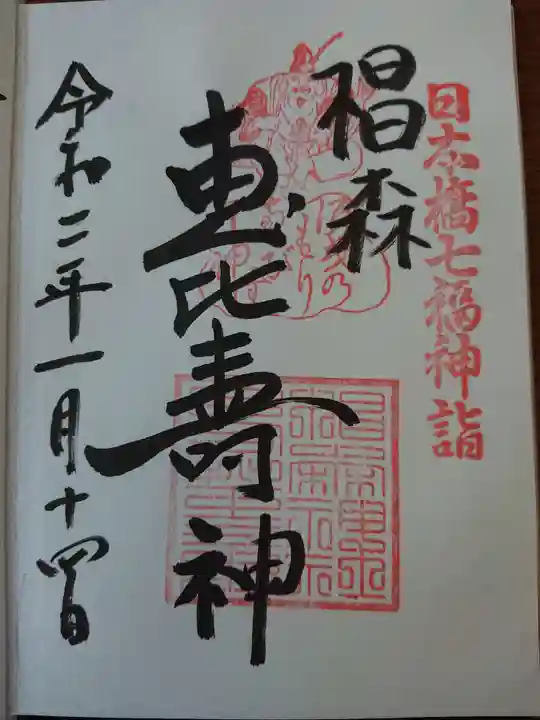 日本橋七福神詣
椙森
恵比壽神
令和二年一月十四日